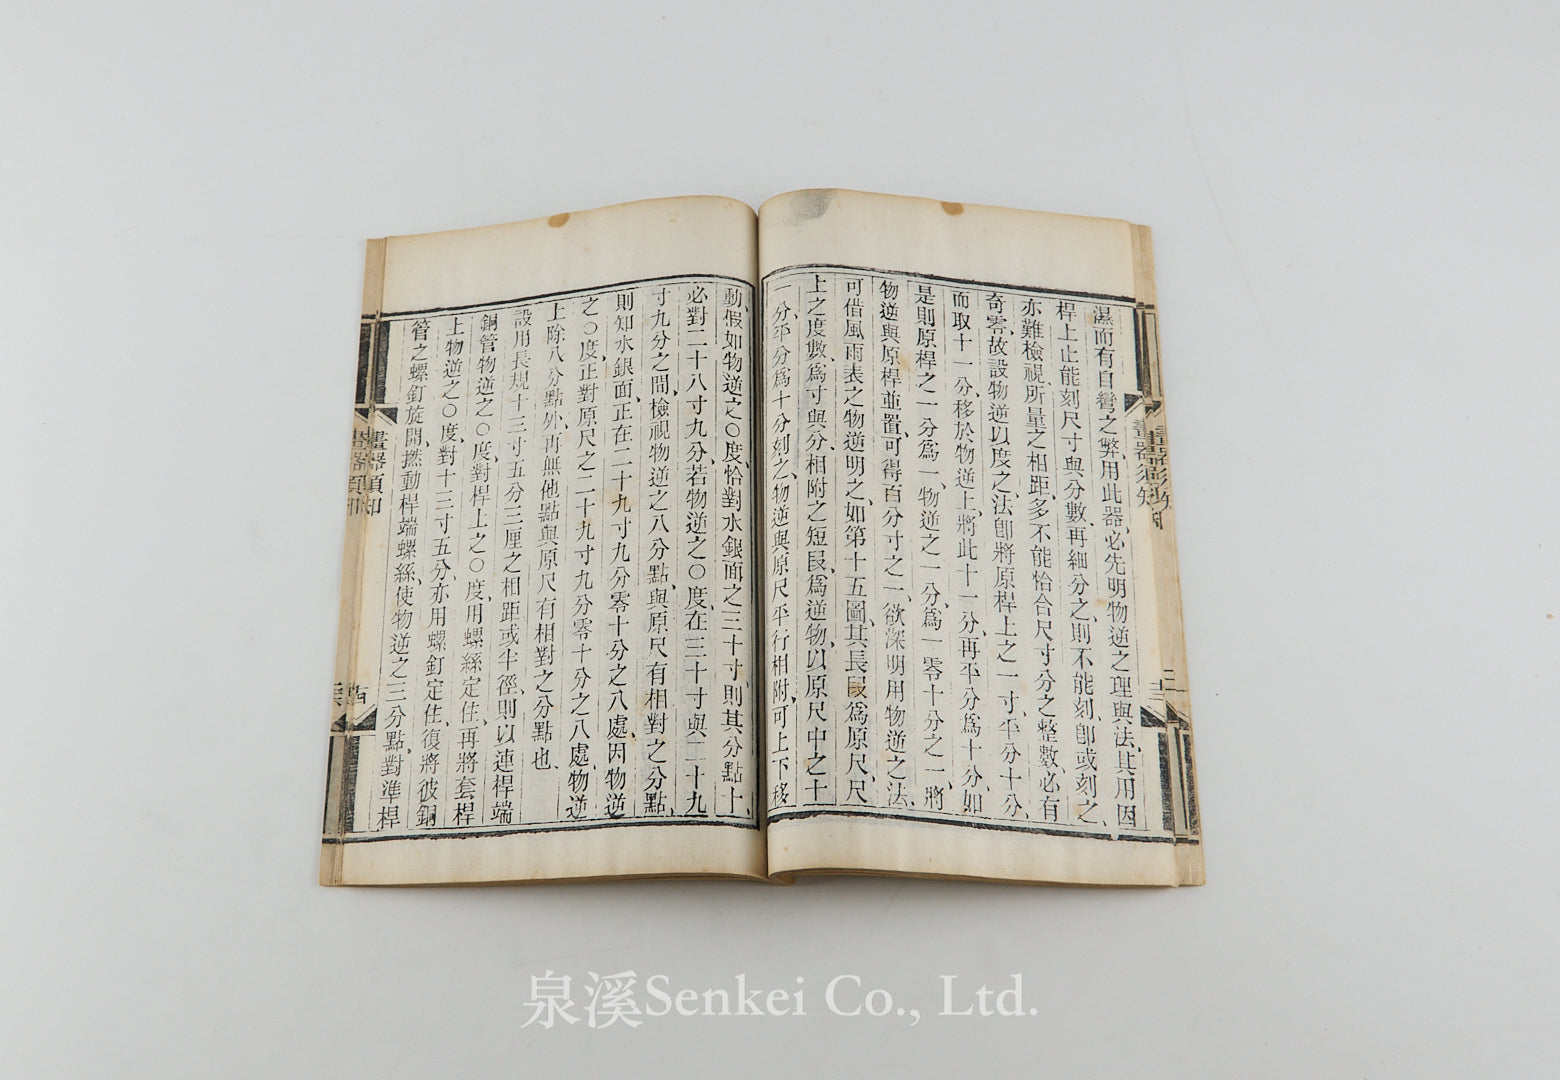 濕而有自彎之弊用此器必先明物逆之理與法其用因
桿上止能刻尺寸與分數再細分之則不能刻卽或刻之
亦難檢視所量之相距多不能恰合尺寸分之整數必有
奇零故設物逆以度之法卽將原桿上之一寸平分十分
而取十一分移於物逆上將此十一分再平分爲十分如
是則原桿之一分爲一物逆之一分爲一零十分之一將
物逆與原桿並置可得百分寸之一欲深明用物逆之法
可借風雨表之物逆明之如第十五圖其長叚爲原尺尺
上之度數爲寸與分相附之短叚爲逆物以原尺中之十
一分平分爲十分刻之物逆與原尺平行相附可上下移
動假如物逆之〇度恰對水銀面之三十寸則其分點十
必對二十八寸九分若物逆之〇度在三十寸與二十九
寸九分之間檢視物逆之八分點與原尺有相對之分點
則知水銀面正在二十九寸九分零十分之八處因物逆
之〇度正對原尺之二十九寸九分零十分之八處物逆
上除八分點外再無他點與原尺有相對之分點也
設用長規十三寸五分三厘之相距或半徑則以連桿端
銅管物逆之〇度對桿上之〇度用螺絲定住再將套桿
上物逆之〇度對十三寸五分亦用螺釘定住復將彼銅
管之螺釘旋開撚動桿端螺絲使物逆之三分點對準桿
畫器須知
畫器須知
泉溪Senkei Co., Ltd.